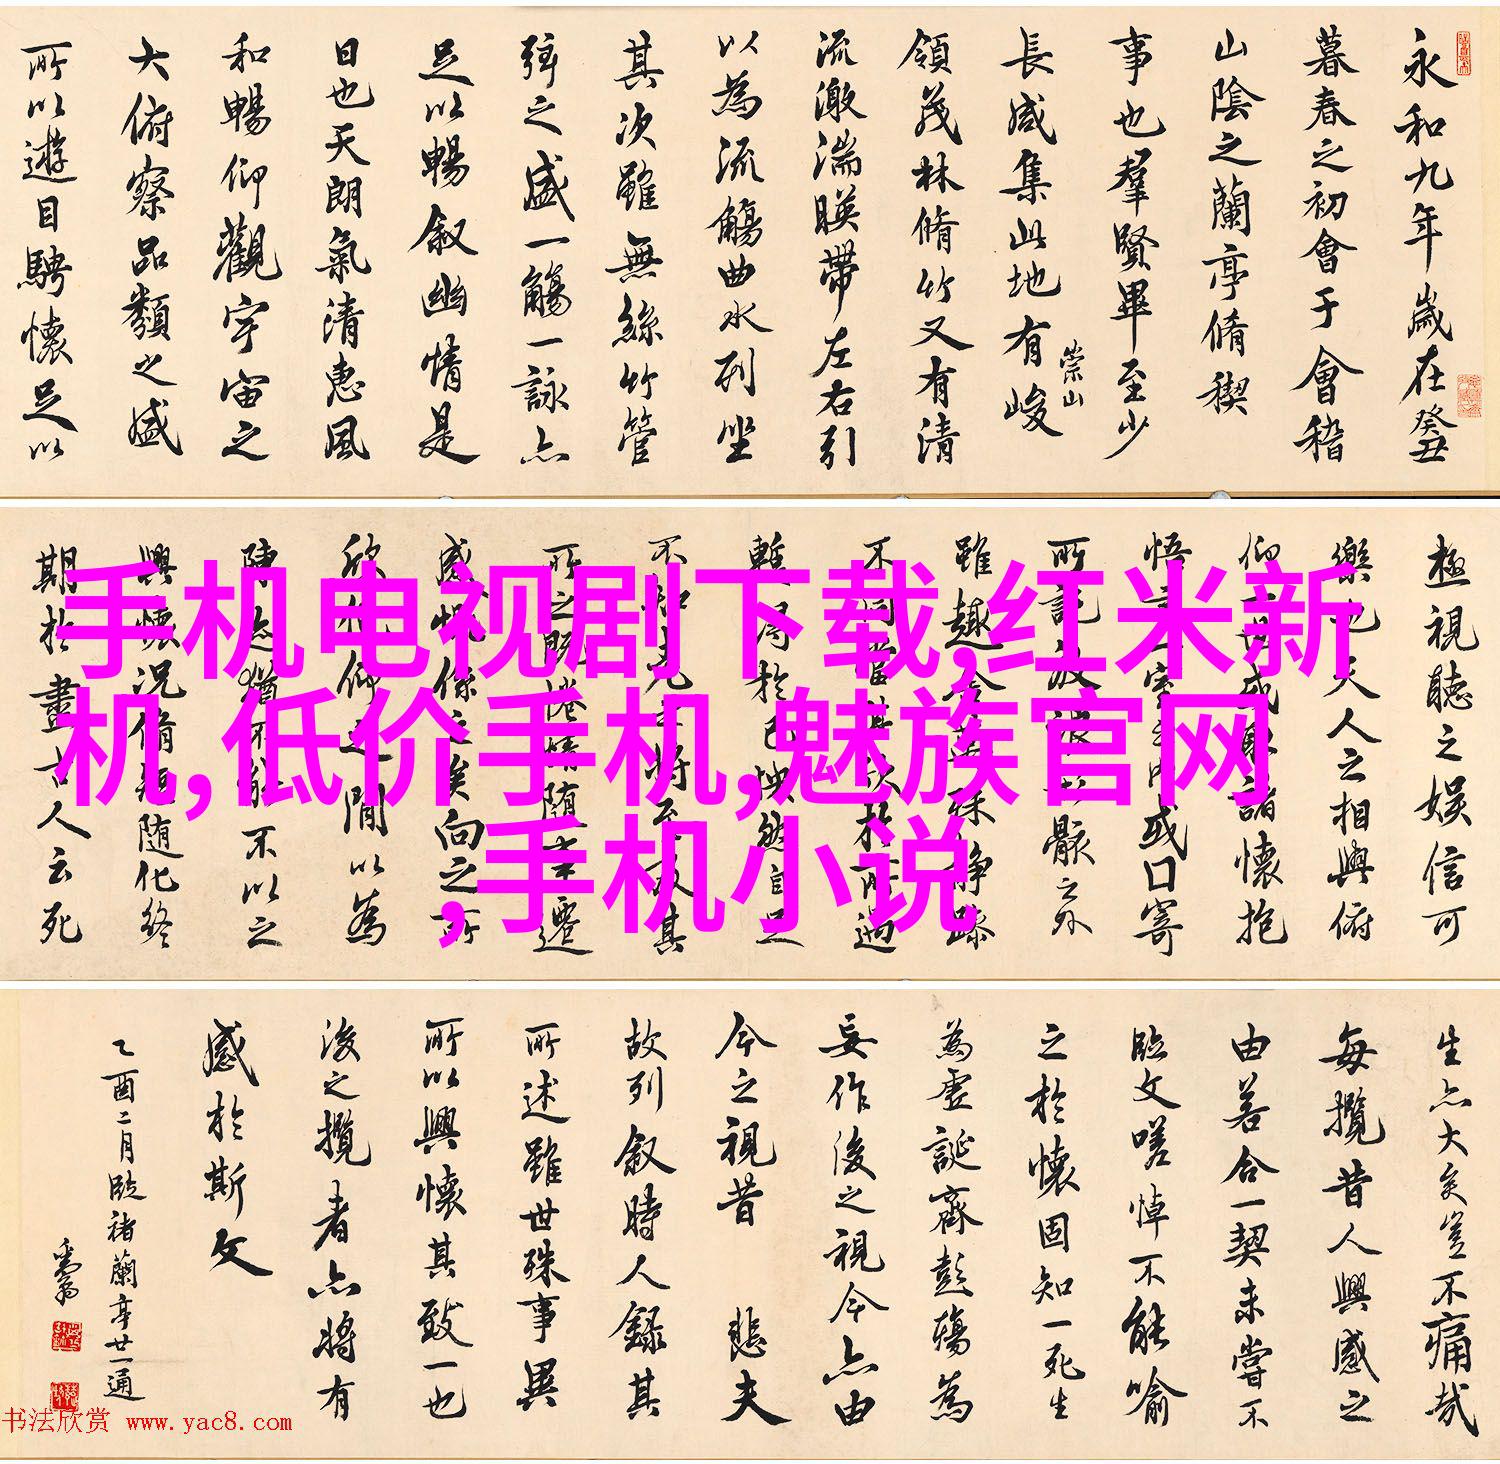 永和九年歲在癸丑
暮春之初會于會稽
山陰之蘭亭脩稧
事也羣賢畢至少
長咸集此地有峻
崇山
領茂林脩竹又有清
流激湍暎帶左右引
以為流觴曲水列坐
其次雖無絲竹管
弦之盛一觴一詠亦
足以暢叙幽情是
日也天朗氣清惠風
和暢仰觀宇宙之
大俯察品類之盛
所以遊目騁懷足以
極視聽之娛信可
樂也夫人之相與俯
仰一世或取諸懷抱
悟言室之內或口寄
所託放浪形骸之外
雖趣舍萬殊靜躁
不同當其欣於所遇
暫得於己怏然自足
不知老之將至及其
所之既惓情隨事遷
感慨係之矣向之所
欣俛仰之間以為
陳迹猶不能不以之
興懷況脩短隨化終
期於盡古人云死
手机电视剧下载,红米新
机,低价手机,魅族官网
,手机小说
生亦大矣豈不痛哉
每攬昔人興感之
由若合一契未嘗不
臨文嗟悼不能喻
之於懷固知一死生
為虛誕齊彭殤為
妄作後之視今亦由
今之視昔 悲夫
故列叙時人錄其
所述雖世殊事異
所以興懷其致一也
後之攬者亦將有
感於斯文
乙酉二月臨褚蘭亭廿一通
书法欣赏 www.yac8.com